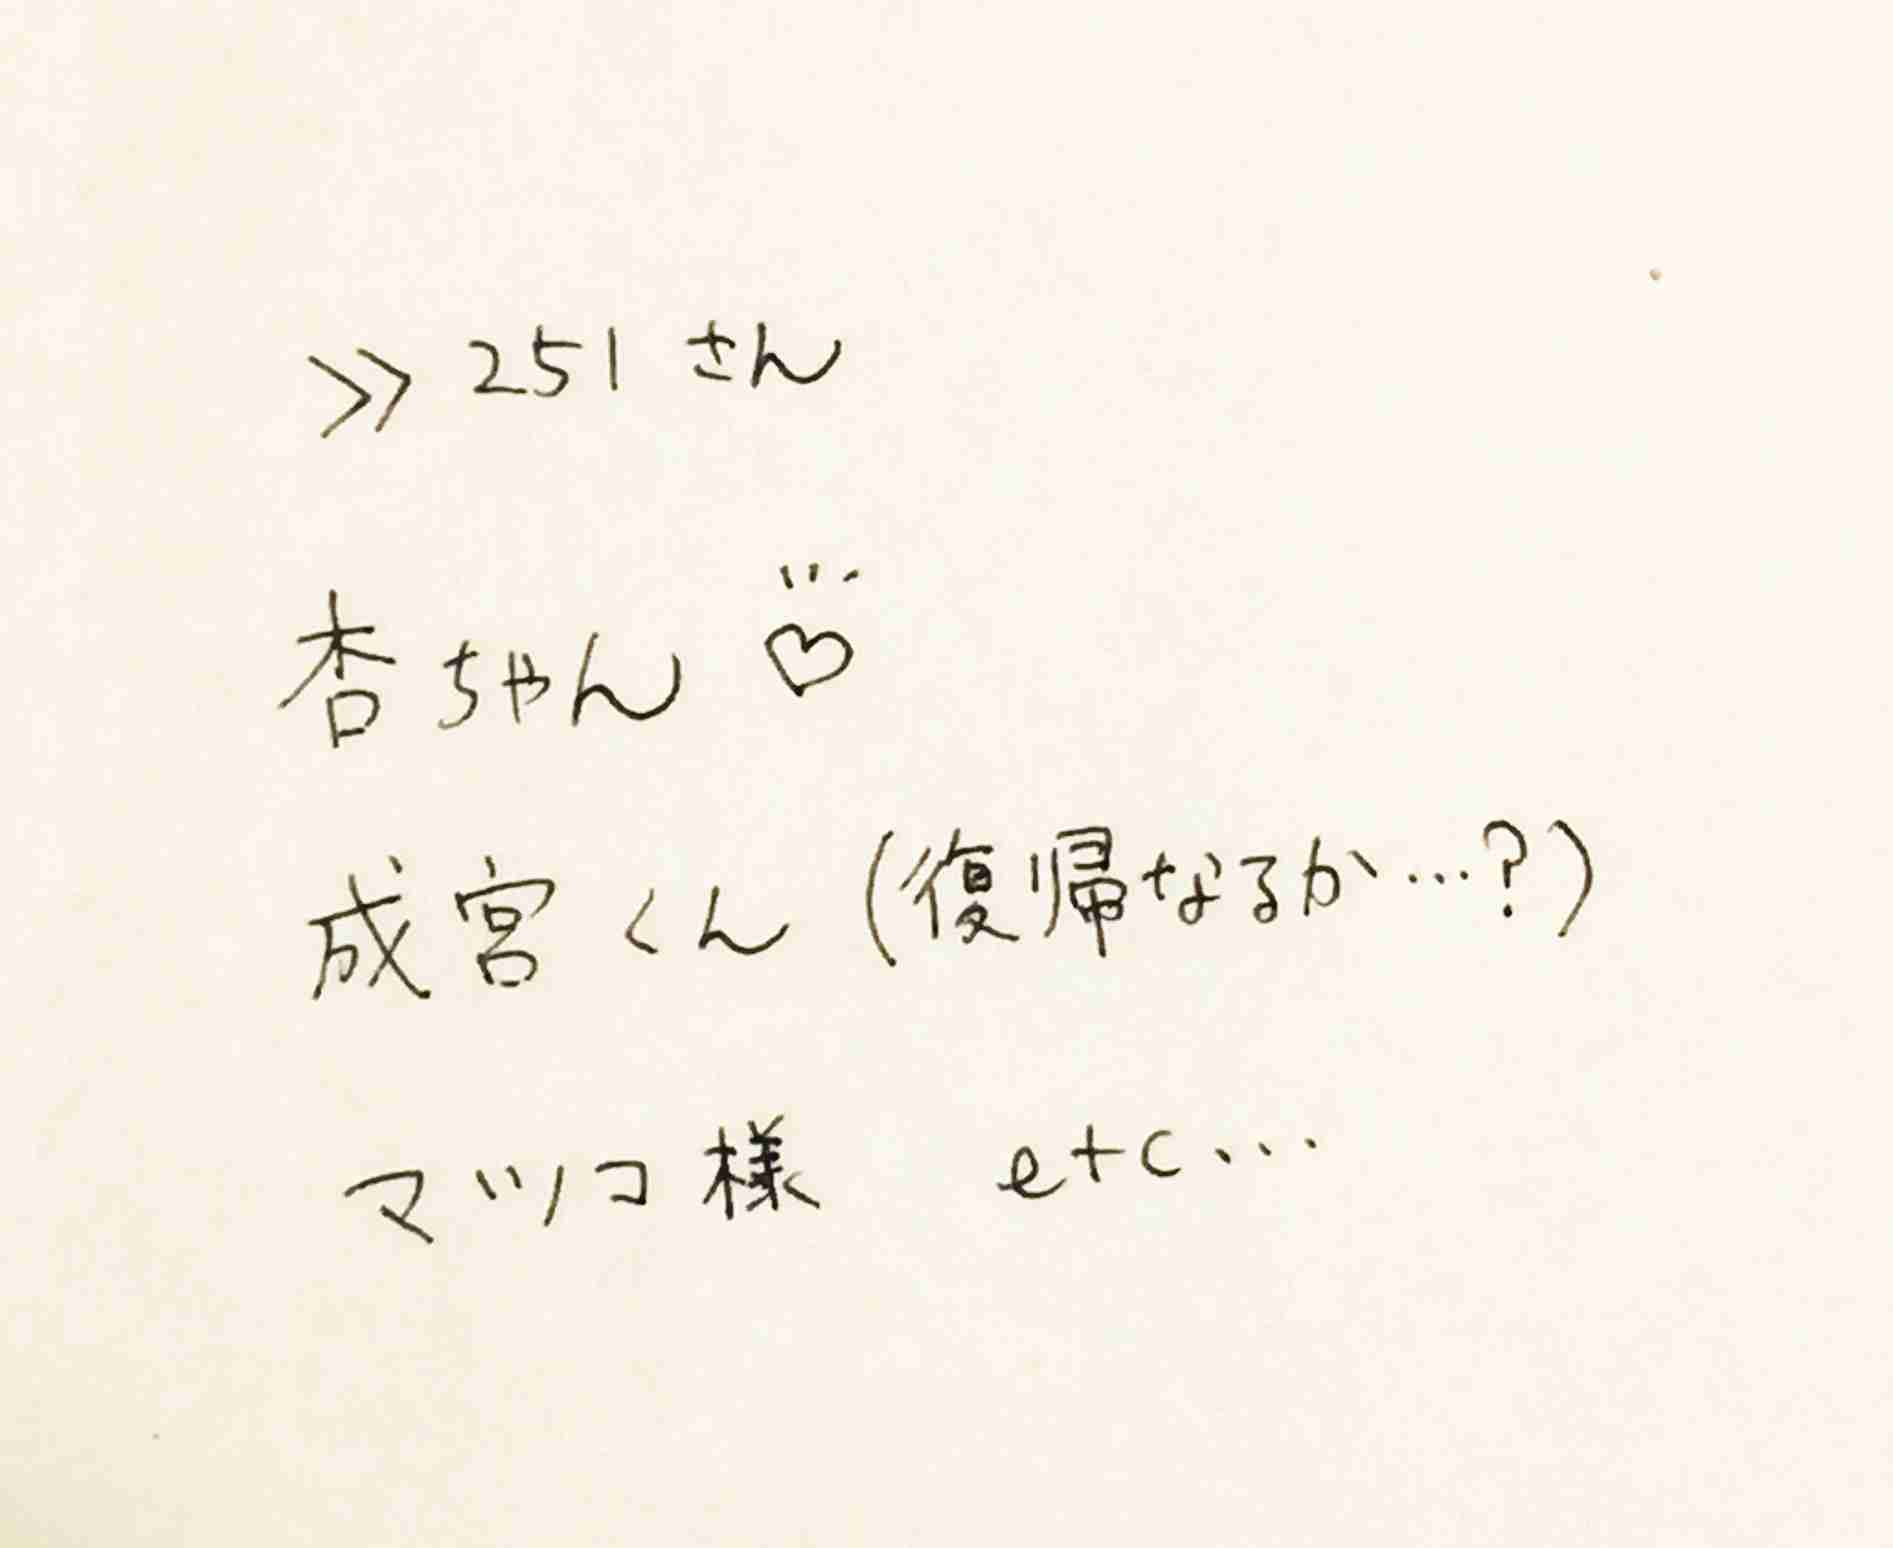 >> 251 さん
杏ちゃん ♡
成宮くん (復帰なるか…?)
マツコ様 etc…